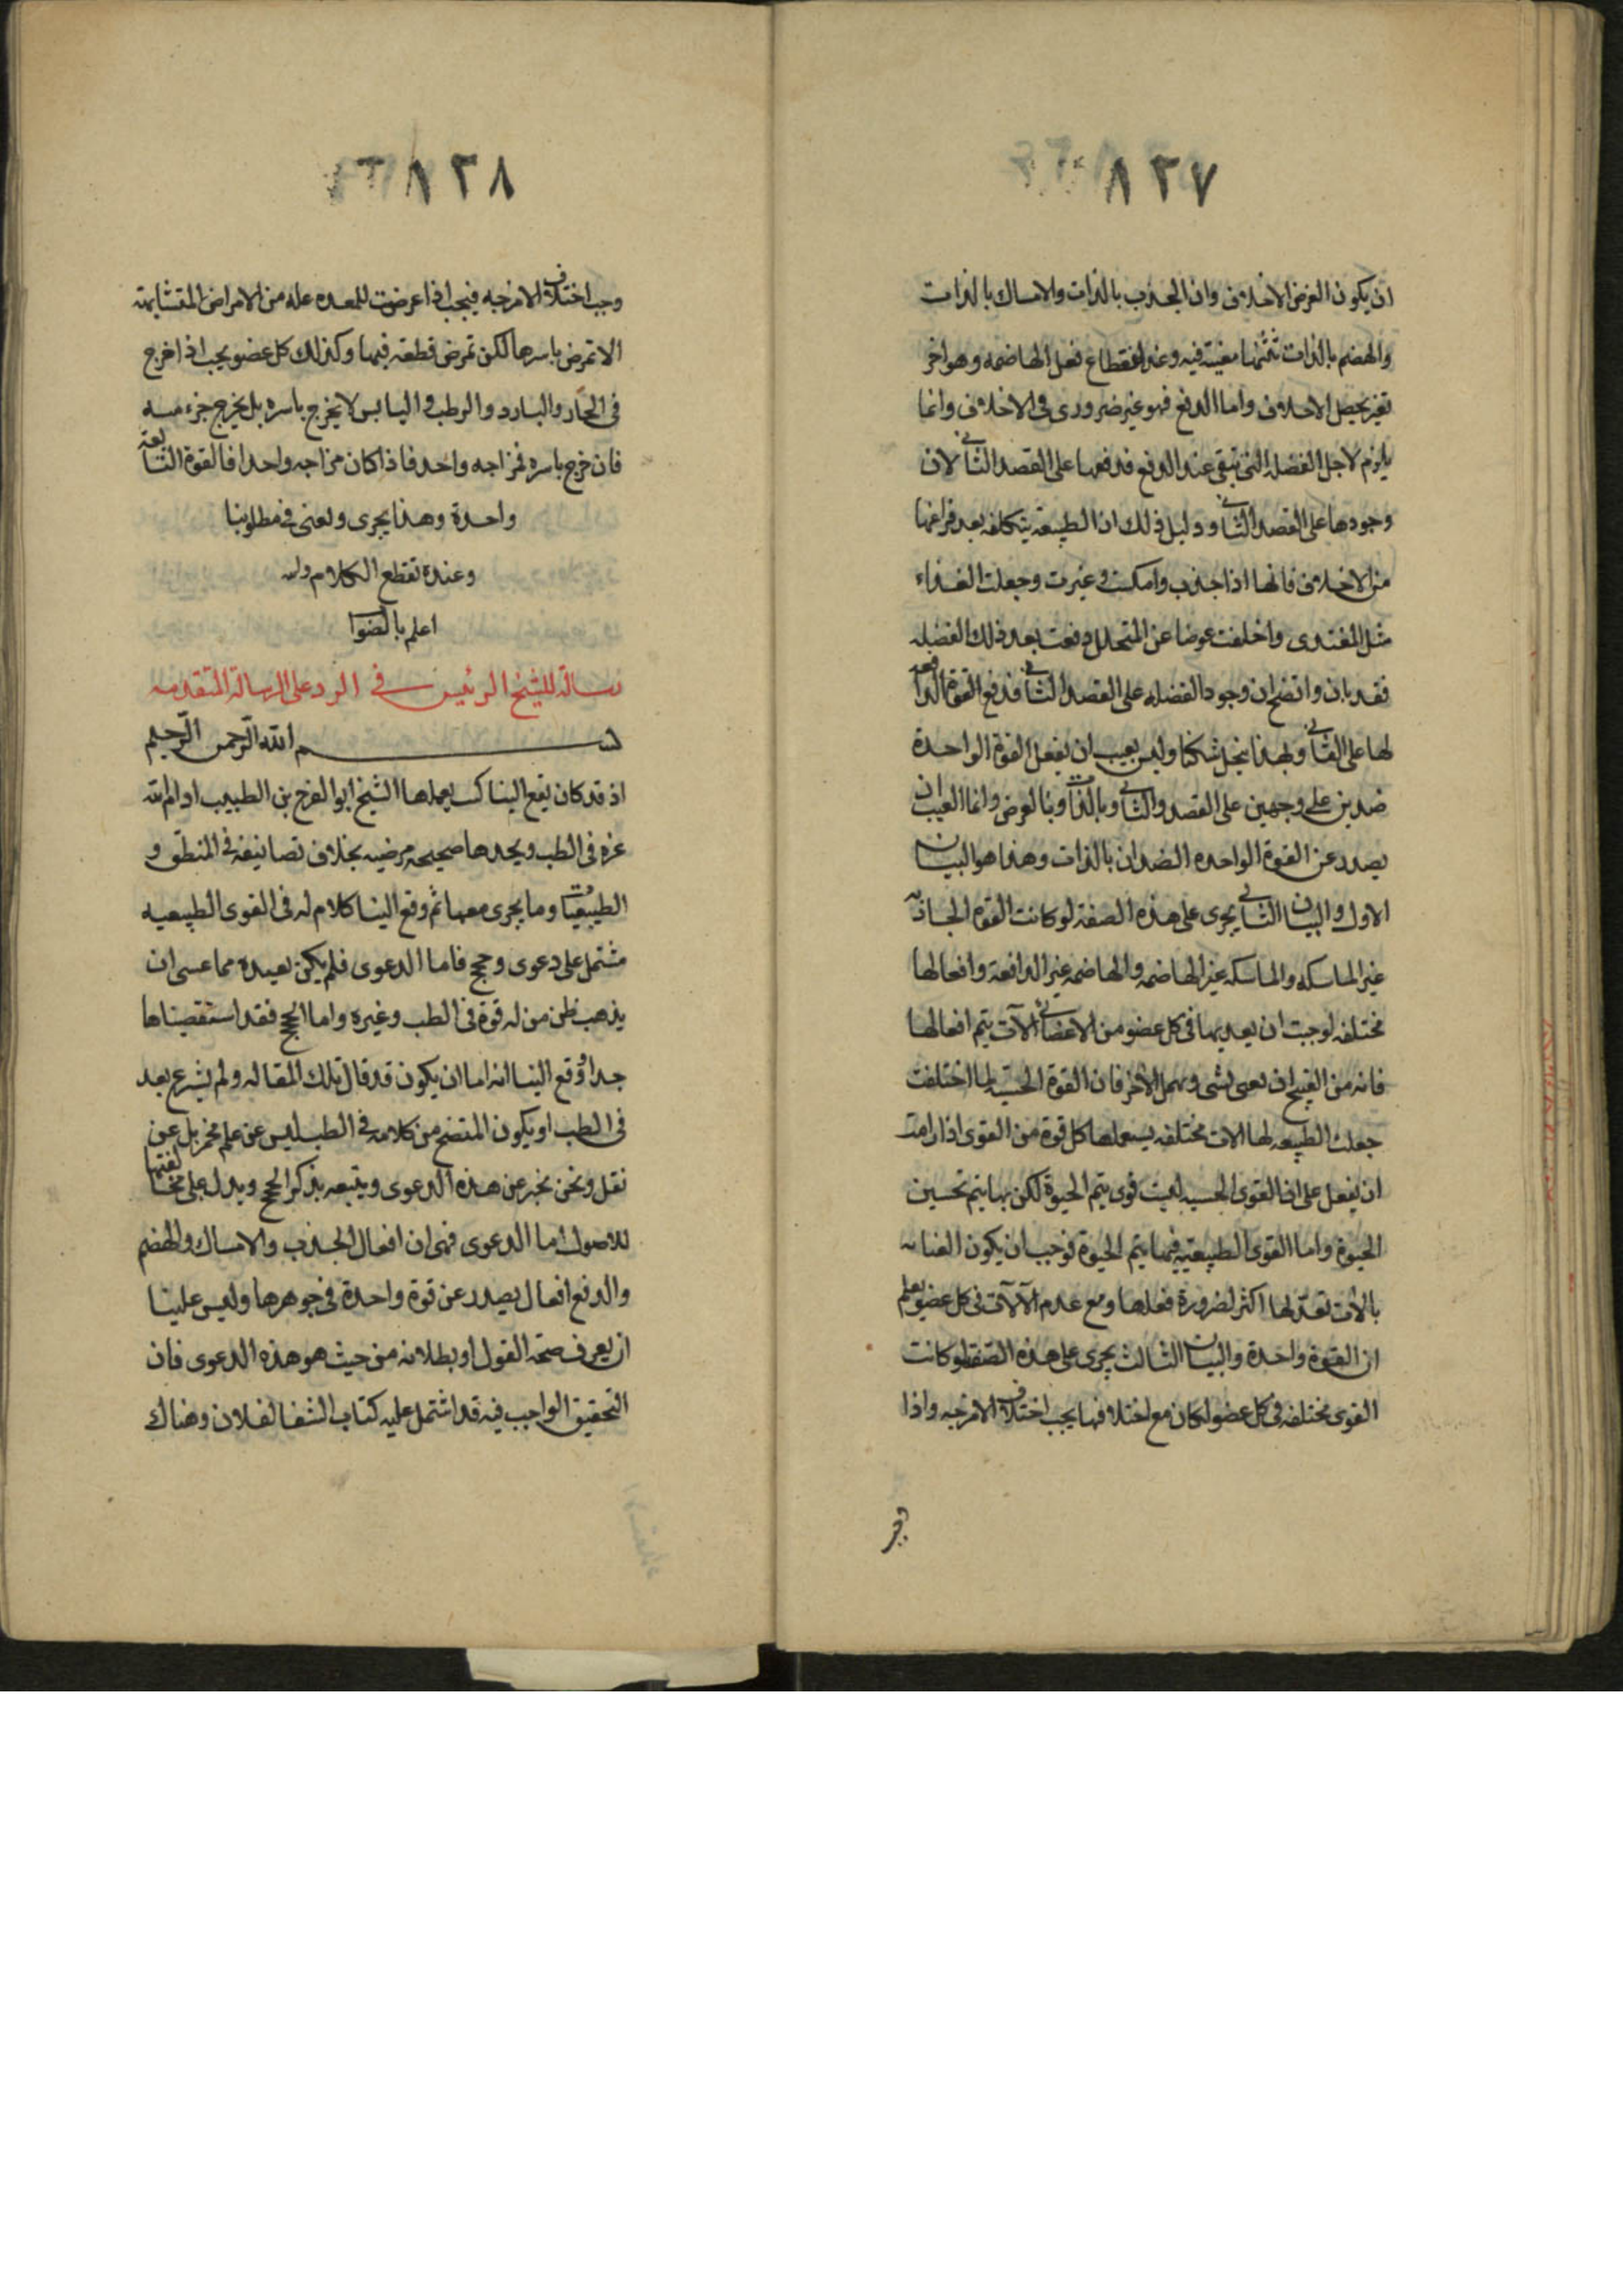 ٨٢٧
ان يكون الغرض الاخلاف وان الجذب بالذات والامساك بالذات
والهضم بالذات ثمثها معينة فيه وعند انقطاع فعل الهاضمه وهو اخر
تغير يحصل الاخلاف واما الدفع فهو غير ضرورى فى الاخلاف وانما
يلزم لاجل الفضله التى تبقى عند الدفع فدفعها على القصد الثانى لان
وجودها على القصد الثانى ودليل ذلك ان الطبيعة يتكلفه بعد فراغها
من الاخلاف فانها اذا جذب وامسكت وغيرت وجعلت الغذاء
مثل المغتذى واخلفت عوضا عن المتحلل دفعت بعد ذلك الفضله
فقد بان واتضح ان وجود الفضله على القصد الثانى فدفع القوة الدافعه
لها على الثانى وبهذا ينحل شكنا وليس بعيب ان يفعل القوة الواحدة
ضدين على وجهين على القصد والثانى وبالذات وبالعرض وانما العيب ان
يصدر عن القوة الواحده الضدان بالذات وهذا هو البيان
الاول والبيان الثانى يجرى على هذه الصفة لو كانت القوة الجاذبه
غير الماسكه والماسكه غير الهاضمه والهاضمه غير الدافعة وافعالها
مختلفه لوجبت ان يعد بها فى كل عضو من الاعضاء الآت يتم افعالها
فانه من القبيح ان يعنى بشى ويهمل الاخر فان القوة الحسيه لما اختلفت
جعلت الطبيعه لها الات مختلفه يستعملها كل قوة من القوى اذا رامت
ان يفعل على ان القوى الحسيه ليست قوى يتم الحيوة لكن بها يتم تحسين
الحيوة واما القوى الطبيعيه فبها يتم الحيوة فوجب ان يكون العنايه
بالات تعد لها اكثر لضرورة فعلها ومع عدم الآلات فى كل عضو يعلم
ان القوة واحدة والبيان الثالث يجرى على هذه الصفة لو كانت
القوى مختلفه فى كل عضو لكان مع اختلافها يجب اختلاف الامزجه واذا
٨٢٨
وجب اختلاف الامزجه فيجب اذا عرضت للمعده عله من الامراض المتشابهة
الا تمرض باسرها لكن تمرض قطعة فيها وكذلك كل عضو يجب اذا خرج
فى الحار والبارد والرطب واليابس لا يخرج باسره بل يخرج جزء منه
فان خرج باسره فمزاجه واحد فاذا كان مزاجه واحدا فالقوة التابعة
واحدة وهذا يجرى ويعنى فى مطلوبنا
وعنده نقطع الكلام والله
اعلم بالصواب
رسالة للشيخ الرئيس فى الرد على الرسالة المتقدمه
بسم الله الرحمن الرحيم
اذ قد كان يقع الينا كتب يعملها الشيخ ابو الفرج بن الطبيب ادام الله
عزه فى الطب ويجدها صحيحه مرضيه بخلاف تصانيفه فى المنطق و
الطبيعيات وما يجرى معهما ثم وقع الينا كلام له فى القوى الطبيعيه
مشتمل على دعوى وحجج فاما الدعوى فلم يكن بعيده مما عسى ان
يذهب ظن من له قوة فى الطب وغيره واما الحجج فقد استقصيناها
جدا ووقع الينا انه اما ان يكون قد قال تلك المقاله ولم يشرع بعد
فى الطب او يكون المتضح من كلامه فى الطب ليس عن علم مخمر بل عن
نقل ونحن نخبر عن هذه الدعوى ويتبعه بذكر الحجج ويدل على مخالفتها
للاصول اما الدعوى فهى ان افعال الجذب والامساك والهضم
والدفع افعال يصدر عن قوة واحدة فى جوهرها وليس علينا
ان يعرف صحة القول او بطلانه من حيث هو هذه الدعوى فان
التحقيق الواجب فيه قد اشتمل عليه كتاب الشفا لفلان وهناك